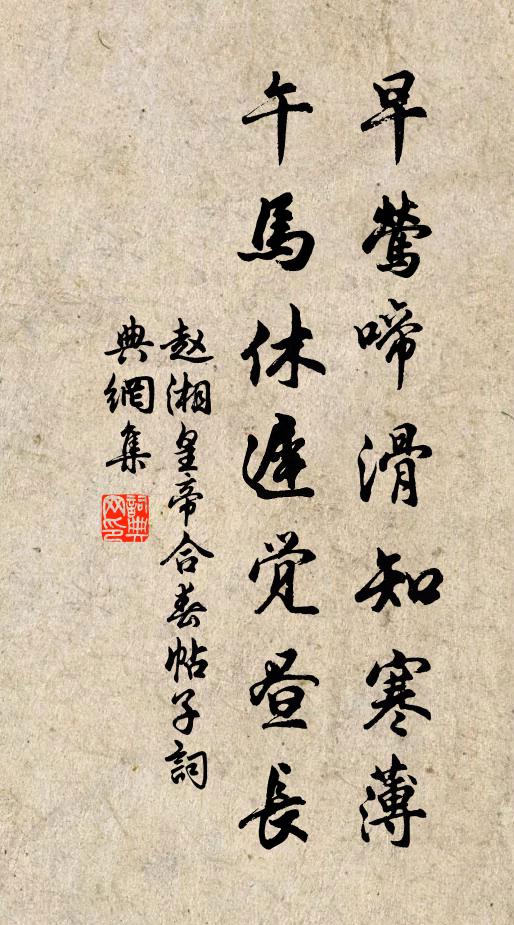 早鶯啼滑知寒薄
午馬休遲觉昼長
赵湘皇帝合春帖子詞
典網集
詞典网印